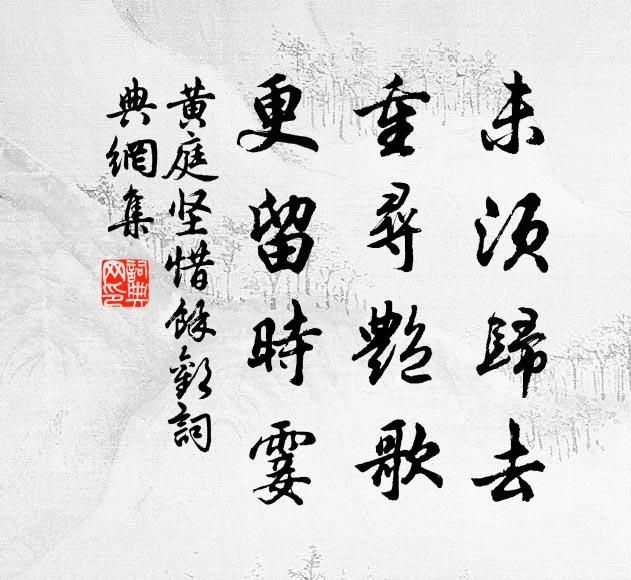 未須歸去
重尋艶歌
更留時霎
黄庭坚惜餘歡詞
典網集
詞典网印